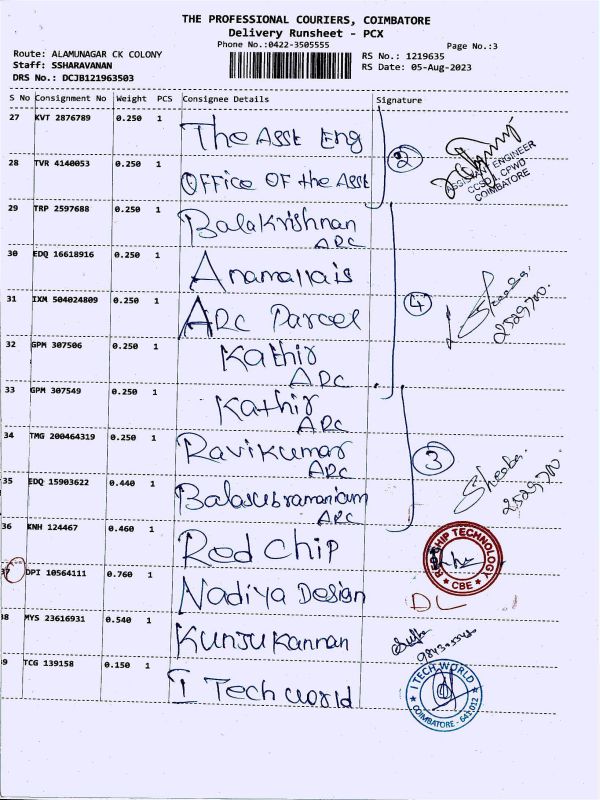 THE PROFESSIONAL COURIERS, COIMBATORE
Delivery Runsheet - PCX
Phone No.:0422-3505555
Page No.:3
Route: ALAMUNAGAR CK COLONY
Staff: SSHARAVANAN
DRS No.: DCJB121963503
RS No.: 1219635
RS Date: 05-Aug-2023
S No Consignment No Weight PCS Consignee Details Signature
27 KVT 2876789 0.250 1 The Asst Eng
28 TVR 4140053 0.250 1 Office Of the Asst
2
ASSISTANT ENGINEER
CCSD-I, CPWD
COIMBATORE
29 TRP 2597688 0.250 1 Balakrishnan
ARC
30 EDQ 16618916 0.250 1 Anamallais
31 IXM 504024809 0.250 1 ARC Parcel
4
Sheeba
32 GPM 307506 0.250 1 Kathir
ARC
33 GPM 307549 0.250 1 Kathir
ARC
34 TMG 200464319 0.250 1 Ravikumar
ARC
3
35 EDQ 15903622 0.440 1 Balasubramanium
ARC
Sheeba
36 KNH 124467 0.460 1 Red Chip
RED CHIP TECHNOLOGY
★ CBE ★
37 DPI 10564111 0.760 1 Nadiya Design
DL
38 MYS 23616931 0.540 1 Kunjukannan
39 TCG 139158 0.150 1 I Tech world
★ I TECH WORLD ★
COIMBATORE - 641 012